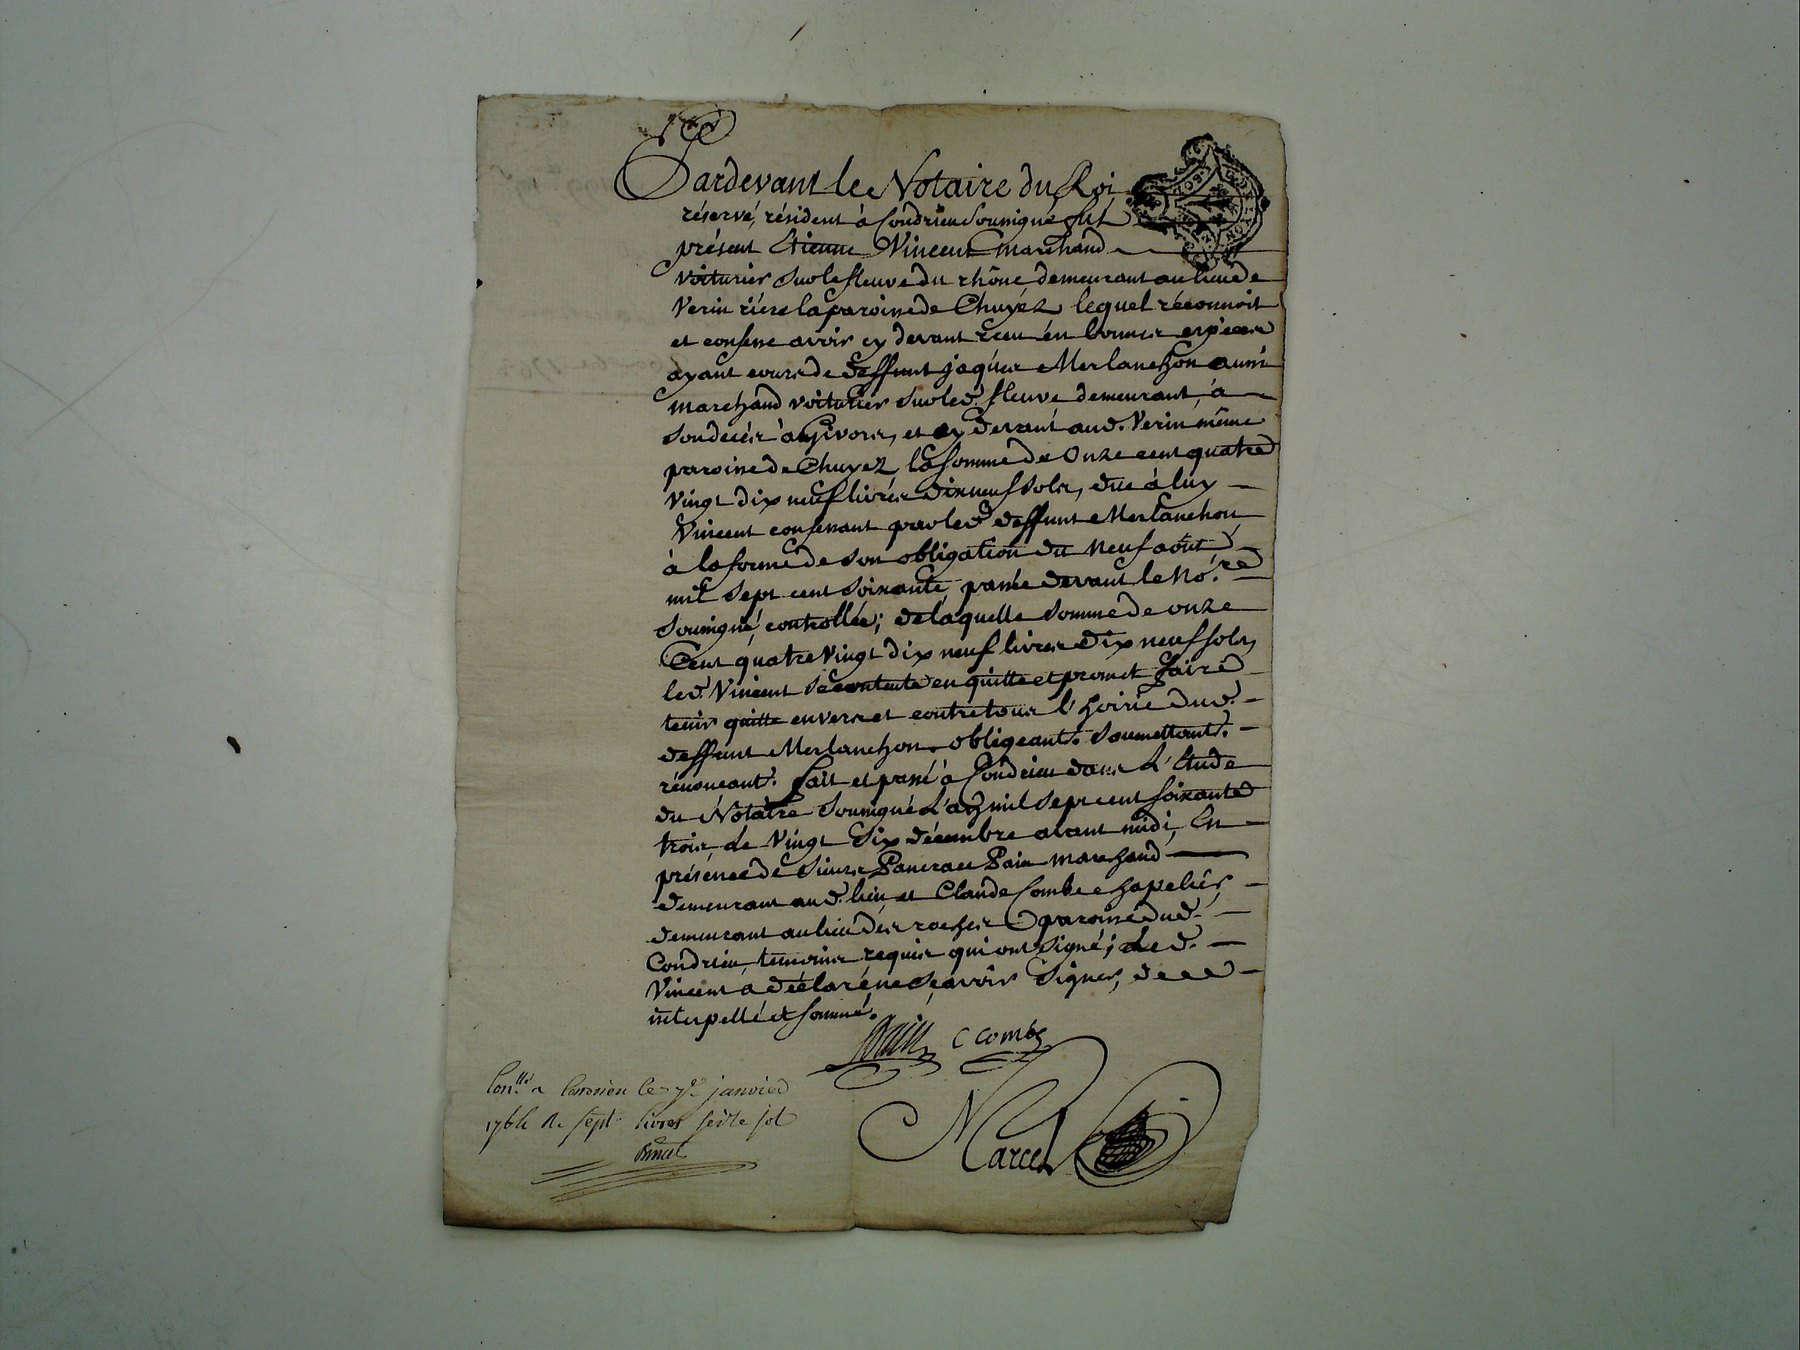 Pardevant le Notaire du Roi
réservé, résident à Condrieu soussigné fut
présent Etienne Vincent marchand
voiturier sur le fleuve du rhône demeurant au lieu de
Verin riere la paroisse de Chuyez lequel réconnoit
et confesse avoir cy devant reçu én bonnes espèces
ayant cours de deffunt jaques Merlanchon aussi
marchand voiturier sur led. fleuve demeurant, à
son decés à Givors, et cy devant aud. Verin même
paroisse de Chuyez la somme de Onze cent quatre
vingt dix neuf livres dix neuf sols, due à luy
Vincent confessant par led deffunt Merlanchon
à la forme de son obligation du neuf août
mil sept cent soixante passée devant le No.re
soussigné, controllée; de laquelle somme de onze
Cent quatre vingt dix neuf livres dix neuf sols,
led. Vincent se contente en quitte et promet faire
tenir quitte envers et contre tous l'hoirie dud.
deffunt Merlanchon. obligeant. soumettant.
rénonceant. fait et passé à Condrieu dans L'Etude
du Notaire soussigné L'an mil sept cent soixante
trois, le vingt six décembre avant midi, En
présence de sieurs Pancrace Pain marchand
demeurant aud. lieu, et Claude Combe chapelier,
demeurant au lieu dés roches paroisse dud.
Condrieu, temoins requis qui ont signé; led.
Vincent a déclaré ne sçavoir signer, de ce
interpellé et sommé.
Pain C combe
Marcel
Con.llé a Condrieu le 7e janvier
1764 R. sept livres seize sol